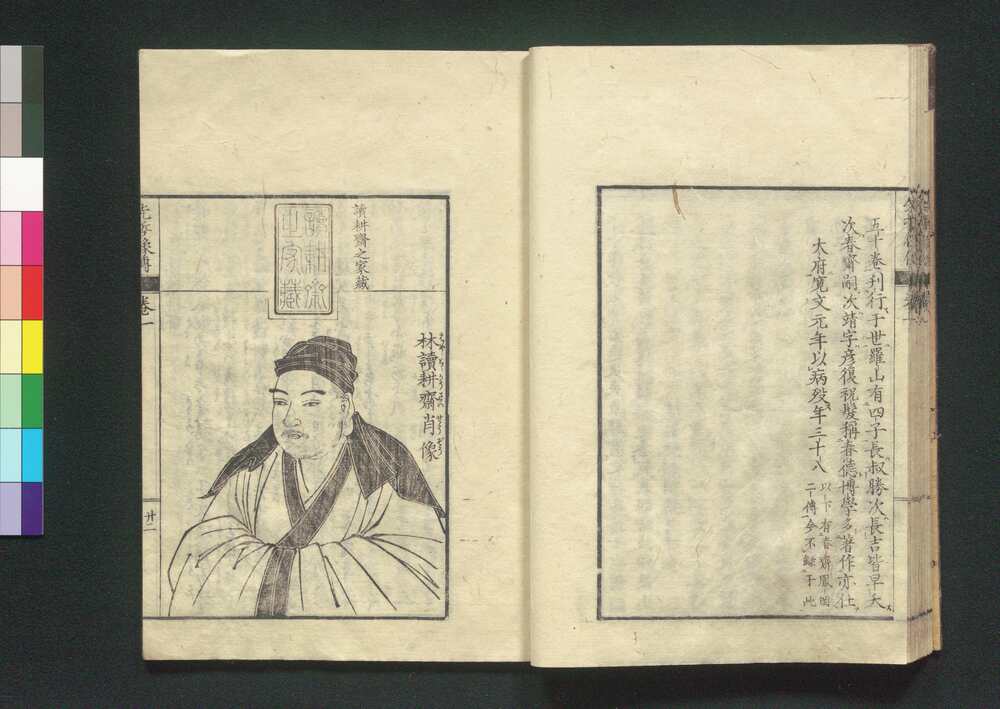 五十卷刊行于世羅山有四子長叔勝次長吉皆早夭
次春齋嗣次靖字彦復祝髮稱春德博學多著作亦仕
大府寛文元年以病歿年三十八
以下有春齋鳳岡
二傳今不錄于此
讀耕齋之家藏
讀耕齋之家藏
林讀耕齋肖像
先哲像傳
卷一
廿二